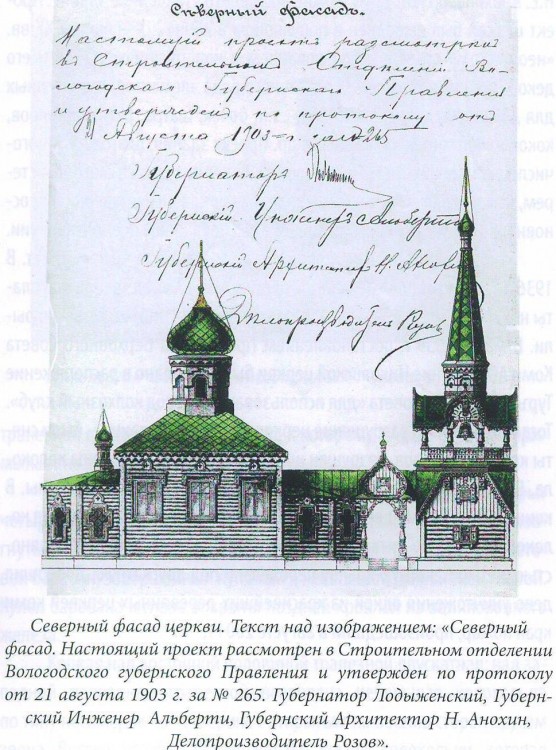 Сѣверный Фасадъ.
Настоящiй проектъ разсмотренъ
въ Строительномъ Отделенiи Во-
логодскаго Губернскаго Правленiя
и утвержденъ по протоколу отъ
21 Августа 1903 г. за № 265
Губернаторъ
Губернскiй Инженеръ Альберти
Губернскiй Архитекторъ Н. Анохинъ
Делопроизводитель Розовъ
Северный фасад церкви. Текст над изображением: «Северный
фасад. Настоящий проект рассмотрен в Строительном отделении
Вологодского губернского Правления и утвержден по протоколу
от 21 августа 1903 г. за № 265. Губернатор Лодыженский, Губерн-
ский Инженер Альберти, Губернский Архитектор Н. Анохин,
Делопроизводитель Розов».